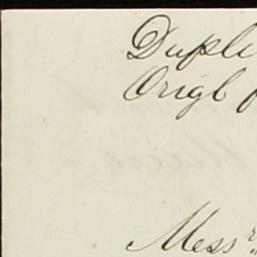 Dupli
Origl
Messrs